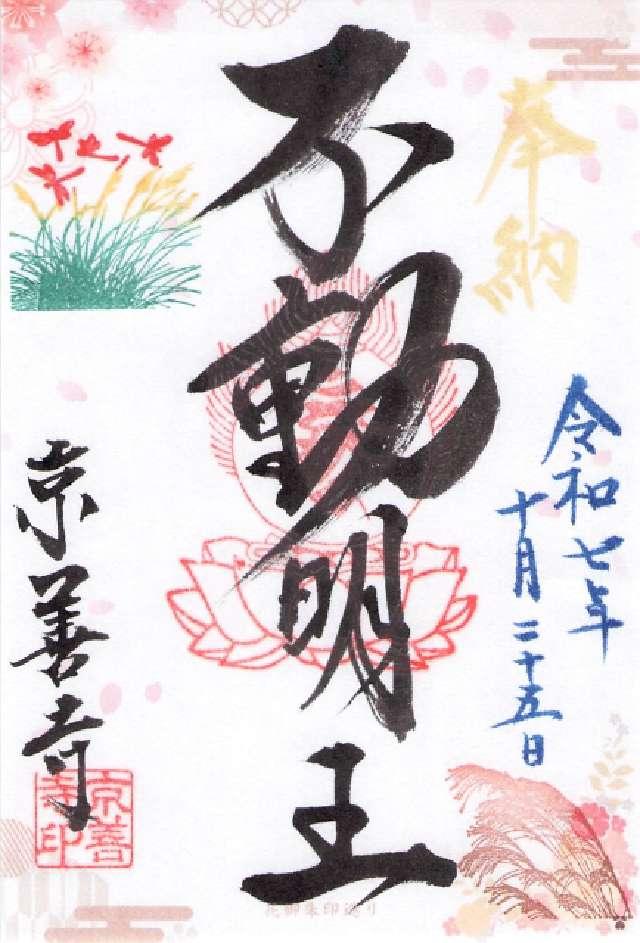 奉納
令和七年
十月二十五日
不動明王
京善寺
京善寺印
花御朱印巡り